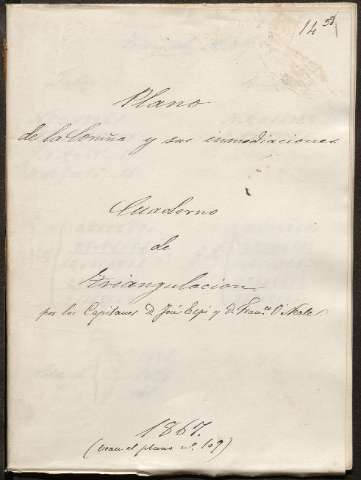 Plano
de la Coruña y sus inmediaciones
Cuaderno
de
triangulacion
por los Capitanes D. José y D. Franco. O'
1867.
(vease el plano nº. 109)